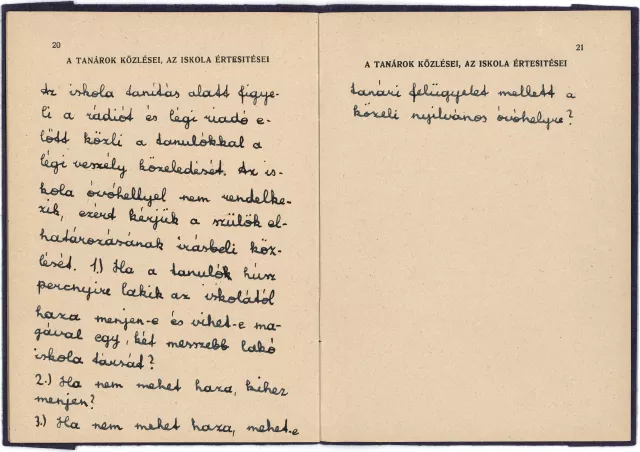 20
A TANÁROK KÖZLÉSEI, AZ ISKOLA ÉRTESITÉSEI
Az iskola tanítás alatt figye-
li a rádiót és légi riadó e-
lőtt közli a tanulókkal a
légi veszély közeledését. Az is-
kola óvóhellyel nem rendelke-
zik, ezért kérjük a szülők el-
határozásának írásbeli köz-
lését. 1.) Ha a tanulók húsz
percnyire lakik az iskolától
haza menjen-e és vihet-e ma-
gával egy, két messzebb lakó
iskola társát?
2.) Ha nem mehet haza, kihez
menjen?
3.) Ha nem mehet haza, mehet-e
21
A TANÁROK KÖZLÉSEI, AZ ISKOLA ÉRTESITÉSEI
tanári felügyelet mellett a
közeli nyilvános óvóhelyre?